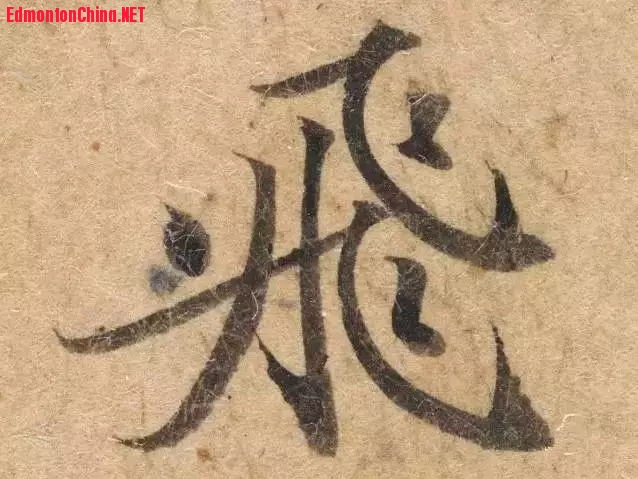 EdmontonChina.NET
飛